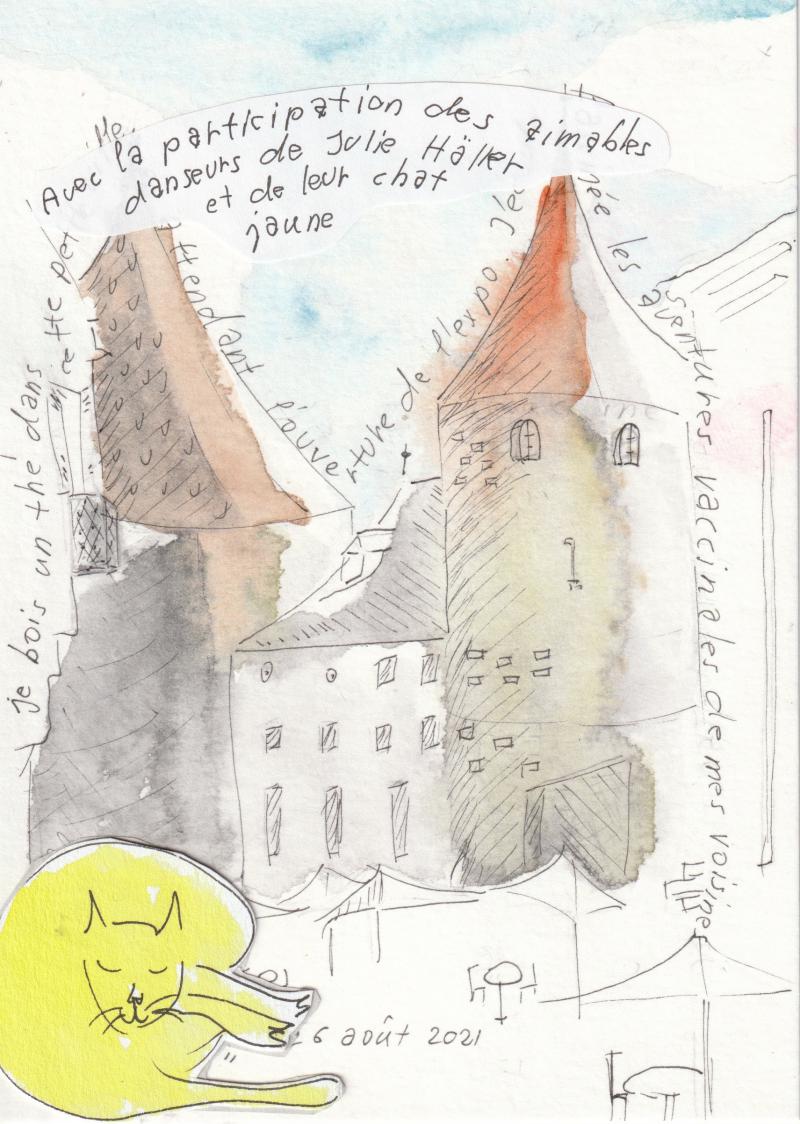 Avec la participation des aimables
danseurs de Julie Häller
et de leur chat
jaune
je bois un thé dans cette pet
attendant l'ouverture de l'expo. J'é
née les aventures vaccinales de mes voisine
6 août 2021